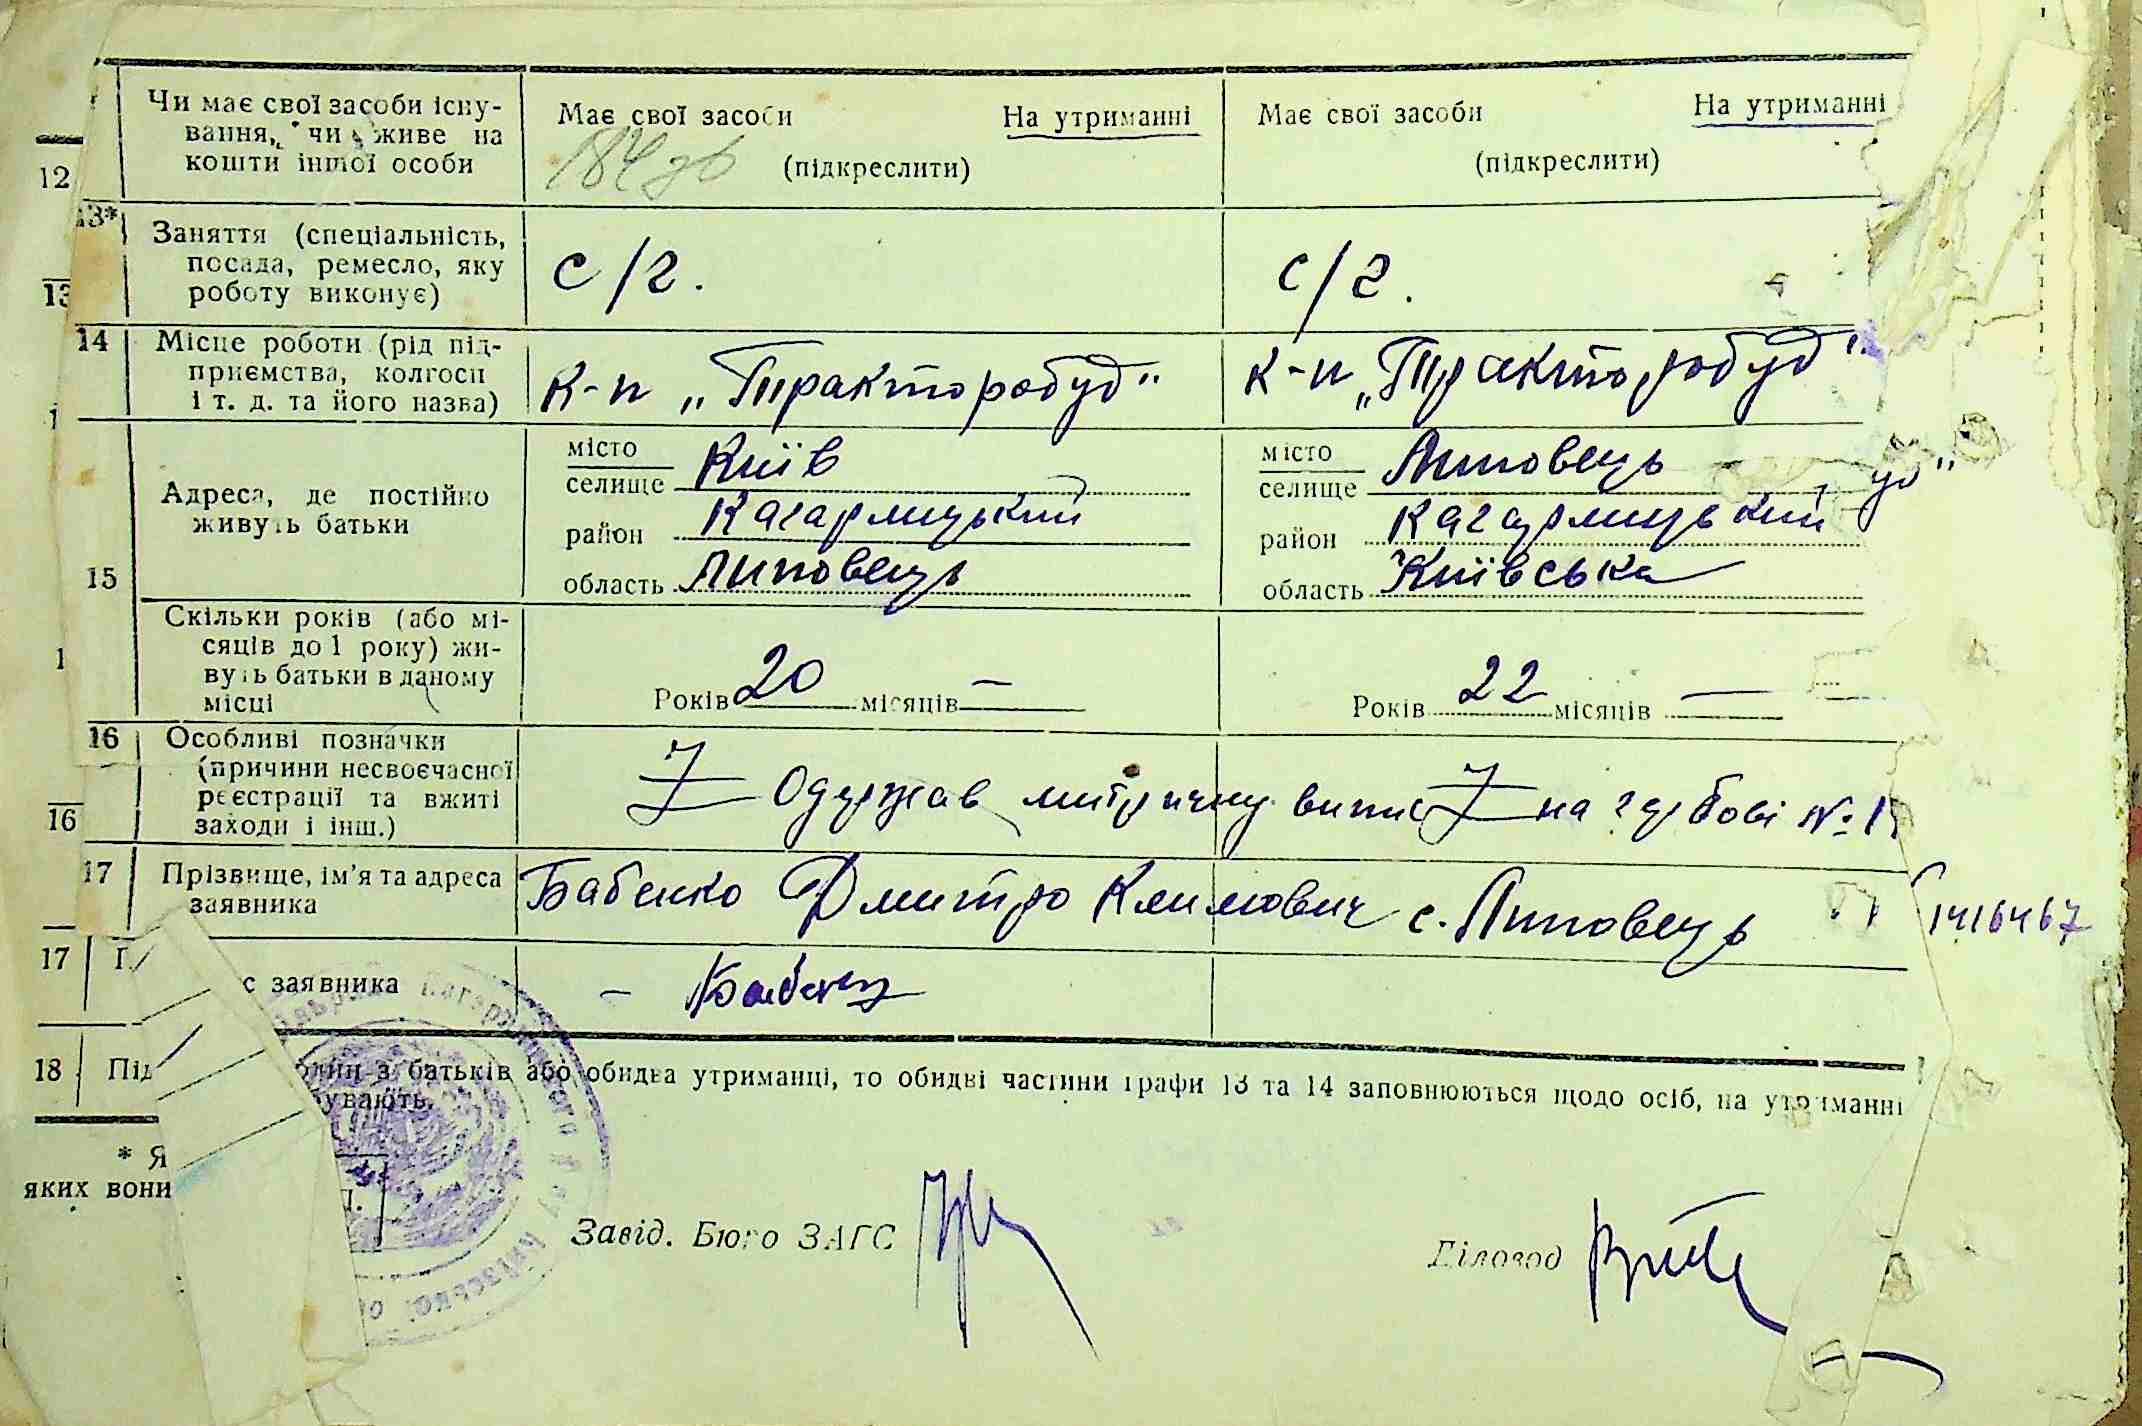 12
Чи має свої засоби існу-
вання, чи живе на
кошти іншої особи
Має свої засоби На утриманні
184 зв (підкреслити)
Має свої засоби На утриманні
(підкреслити)
13*
13
Заняття (спеціальність,
посада, ремесло, яку
роботу виконує)
с/г.
с/г.
14
Місце роботи (рід під-
приємства, колгосп
і т. д. та його назва)
к-п „Тракторобуд"
к-п „Тракторобуд"
15
Адреса, де постійно
живуть батьки
місто
селище Київ
район Кагарлицький
область Липовець
місто
селище Липовець
район Кагарлицький
область Київська
уд"
Скільки років (або мі-
сяців до 1 року) жи-
вуть батьки в даному
місці
Років 20 місяців —
Років 22 місяців —
16
16
Особливі позначки
(причини несвоєчасної
реєстрації та вжиті
заходи і інш.)
Одержав метричну випис на гербові №
17
Прізвище, ім'я та адреса
заявника
Бабенко Дмитро Климович с. Липовець
1416467
17
с заявника
– Бабенко
18 Під
один з батьків або обидва утриманці, то обидві частини графи 13 та 14 заповнюються щодо осіб, на утриманні
* Я
яких вони
увають.
Завід. Бюро ЗАГС
Діловод